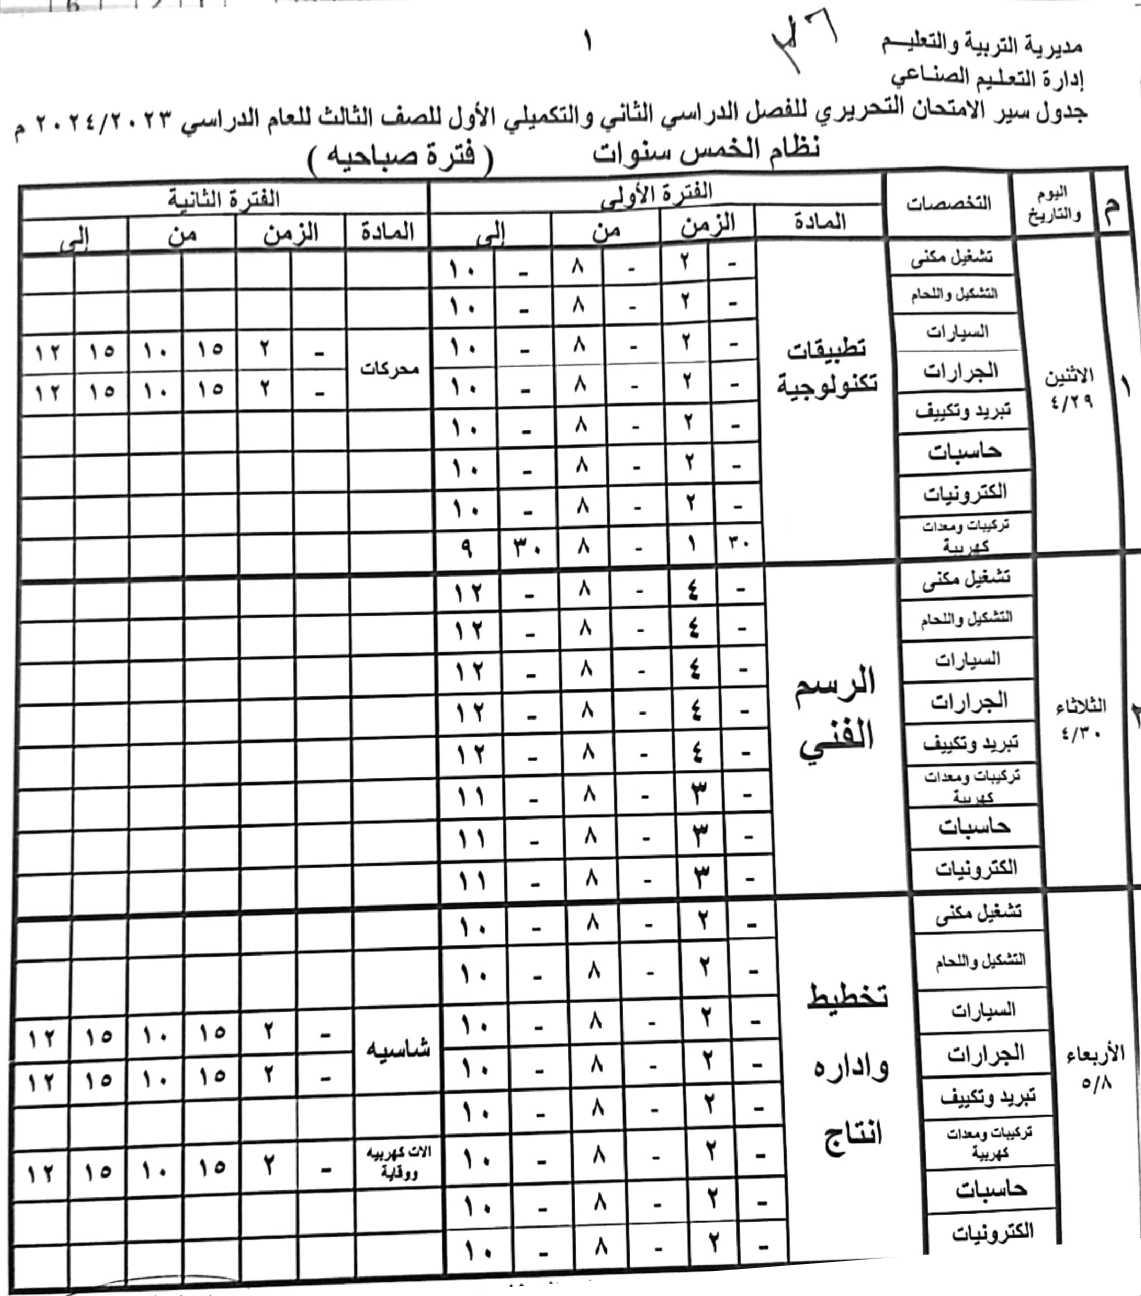 ١
٢٦
مديرية التربية والتعليم
إدارة التعليم الصناعي
جدول سير الامتحان التحريري للفصل الدراسي الثاني والتكميلي الأول للصف الثالث للعام الدراسي ٢٠٢٤/٢٠٢٣ م
نظام الخمس سنوات ( فترة صباحيه )
م اليوم والتاريخ التخصصات الفترة الأولى الفترة الثانية
المادة الزمن من إلى المادة الزمن من إلى
١ الاثنين ٤/٢٩ تطبيقات تكنولوجية
تشغيل مكنى - ٢ - ٨ - ١٠
التشكيل واللحام - ٢ - ٨ - ١٠
السيارات - ٢ - ٨ - ١٠ محركات - ٢ ١٥ ١٠ ١٥ ١٢
الجرارات - ٢ - ٨ - ١٠ - ٢ ١٥ ١٠ ١٥ ١٢
تبريد وتكييف - ٢ - ٨ - ١٠
حاسبات - ٢ - ٨ - ١٠
الكترونيات - ٢ - ٨ - ١٠
تركيبات ومعدات كهربية ٣٠ ١ - ٨ ٣٠ ٩
٢ الثلاثاء ٤/٣٠ الرسم الفني
تشغيل مكنى - ٤ - ٨ - ١٢
التشكيل واللحام - ٤ - ٨ - ١٢
السيارات - ٤ - ٨ - ١٢
الجرارات - ٤ - ٨ - ١٢
تبريد وتكييف - ٤ - ٨ - ١٢
تركيبات ومعدات كهربية - ٣ - ٨ - ١١
حاسبات - ٣ - ٨ - ١١
الكترونيات - ٣ - ٨ - ١١
الأربعاء ٥/٨ تخطيط واداره انتاج
تشغيل مكنى - ٢ - ٨ - ١٠
التشكيل واللحام - ٢ - ٨ - ١٠
السيارات - ٢ - ٨ - ١٠ شاسيه - ٢ ١٥ ١٠ ١٥ ١٢
الجرارات - ٢ - ٨ - ١٠ - ٢ ١٥ ١٠ ١٥ ١٢
تبريد وتكييف - ٢ - ٨ - ١٠
تركيبات ومعدات كهربية - ٢ - ٨ - ١٠ الات كهربيه ووقاية - ٢ ١٥ ١٠ ١٥ ١٢
حاسبات - ٢ - ٨ - ١٠
الكترونيات - ٢ - ٨ - ١٠